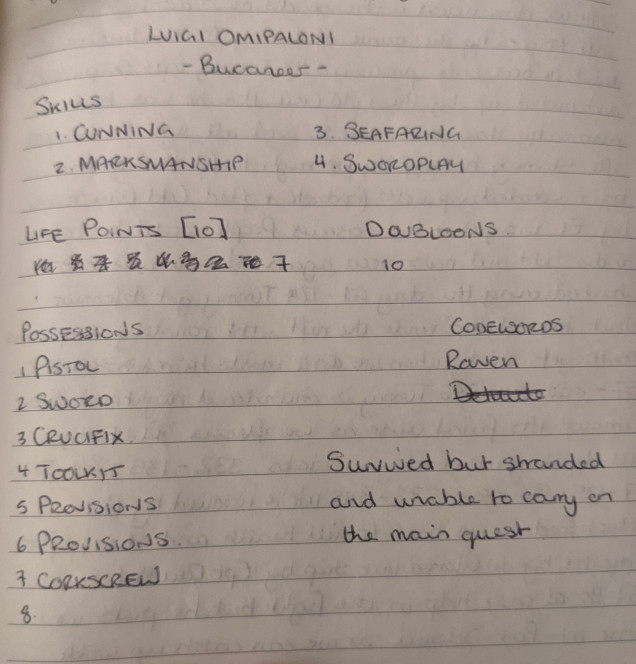 LUIGI OMIPALONI
- Bucaneer -
SKILLS
1. CUNNING 3. SEAFARING
2. MARKSMANSHIP 4. SWORDPLAY
LIFE POINTS [10] DOUBLOONS
7 10
POSSESSIONS CODEWORDS
1 PISTOL Raven
2 SWORD
3 CRUCIFIX
4 TOOLKIT Survived but stranded
5 PROVISIONS and unable to carry on
6 PROVISIONS the main quest
7 CORKSCREW
8.